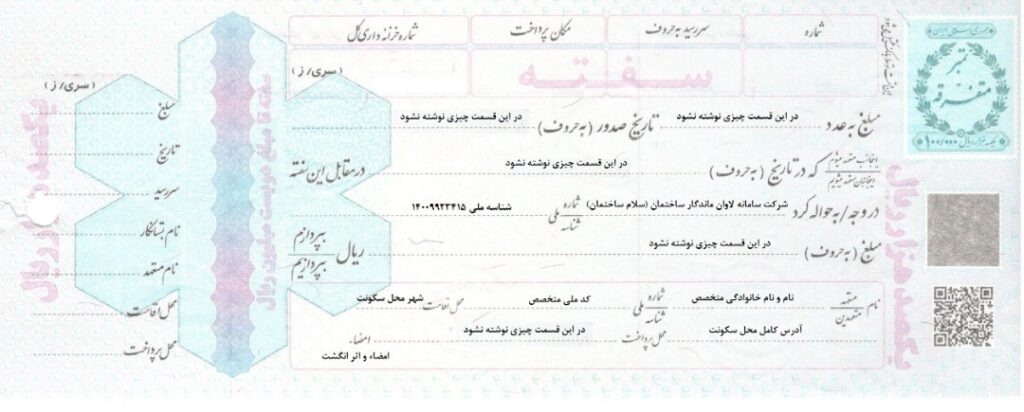 شماره
سررسید به حروف
مکان پرداخت
شماره خزانه داری کل
سفته
جمهوری اسلامی ایران
تمبر
متفرقه
۱۰۰/۰۰۰
یکصد هزار ریال
(سری/ ز)
مبلغ به عدد در این قسمت چیزی نوشته نشود تاریخ صدور (به حروف) در این قسمت چیزی نوشته نشود
اینجانب متعهد میشوم
اینجانبان متعهد میشویم
که در تاریخ (به حروف) در این قسمت چیزی نوشته نشود در مقابل این سفته
در وجه/به حواله کرد شرکت سامانه لاوان ماندگار ساختمان (سلام ساختمان) شماره ملی شناسه شناسه ملی ۱۴۰۰۹۹۲۳۴۱۵
مبلغ (به حروف) در این قسمت چیزی نوشته نشود ریال بپردازم بپردازیم
نام متعهد متعهدین نام و نام خانوادگی متخصص شماره ملی شناسه کد ملی متخصص محل اقامت شهر محل سکونت
آدرس کامل محل سکونت محل پرداخت در این قسمت چیزی نوشته نشود امضاء
امضاء و اثر انگشت
یکصد هزار ریال
سفته تا مبلغ دویست میلیون ریال
(سری/ ز)
مبلغ
تاریخ
سررسید
نام بستانکار
نام متعهد
محل اقامت
محل پرداخت
یکصد هزار ریال